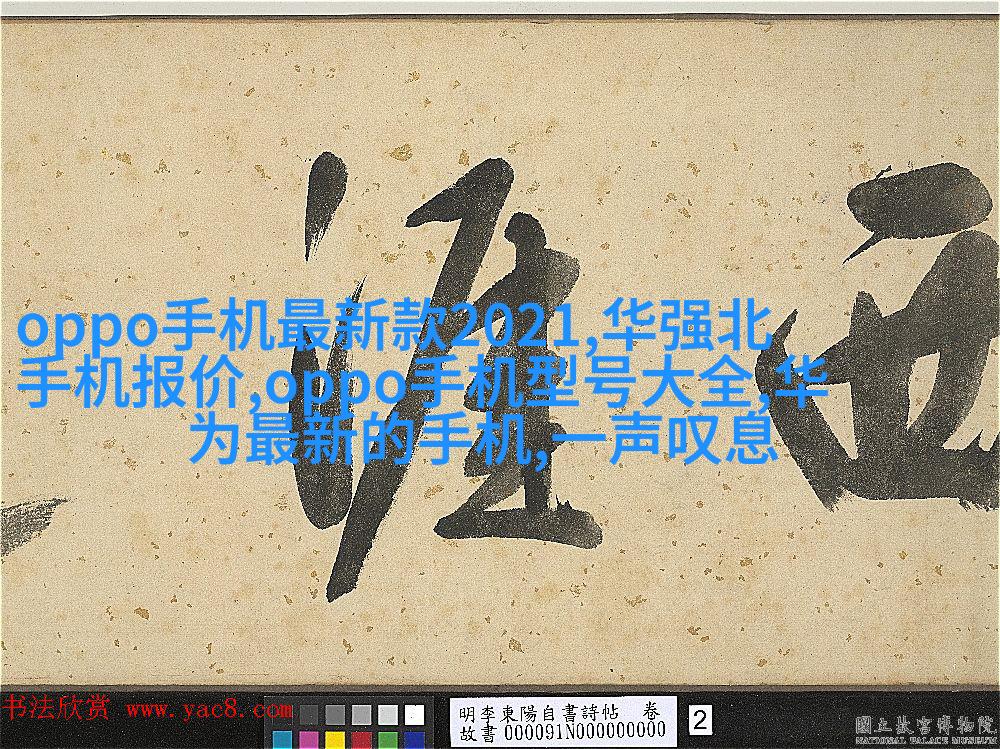 西涯
oppo手机最新款2021,华强北
手机报价,oppo手机型号大全,华
为最新的手机,一声叹息
书法欣赏 www.yac8.com
明李東陽自書詩帖 卷
故書 000091N000000000
2
國立故宮博物院
NATIONAL PALACE MUSEUM